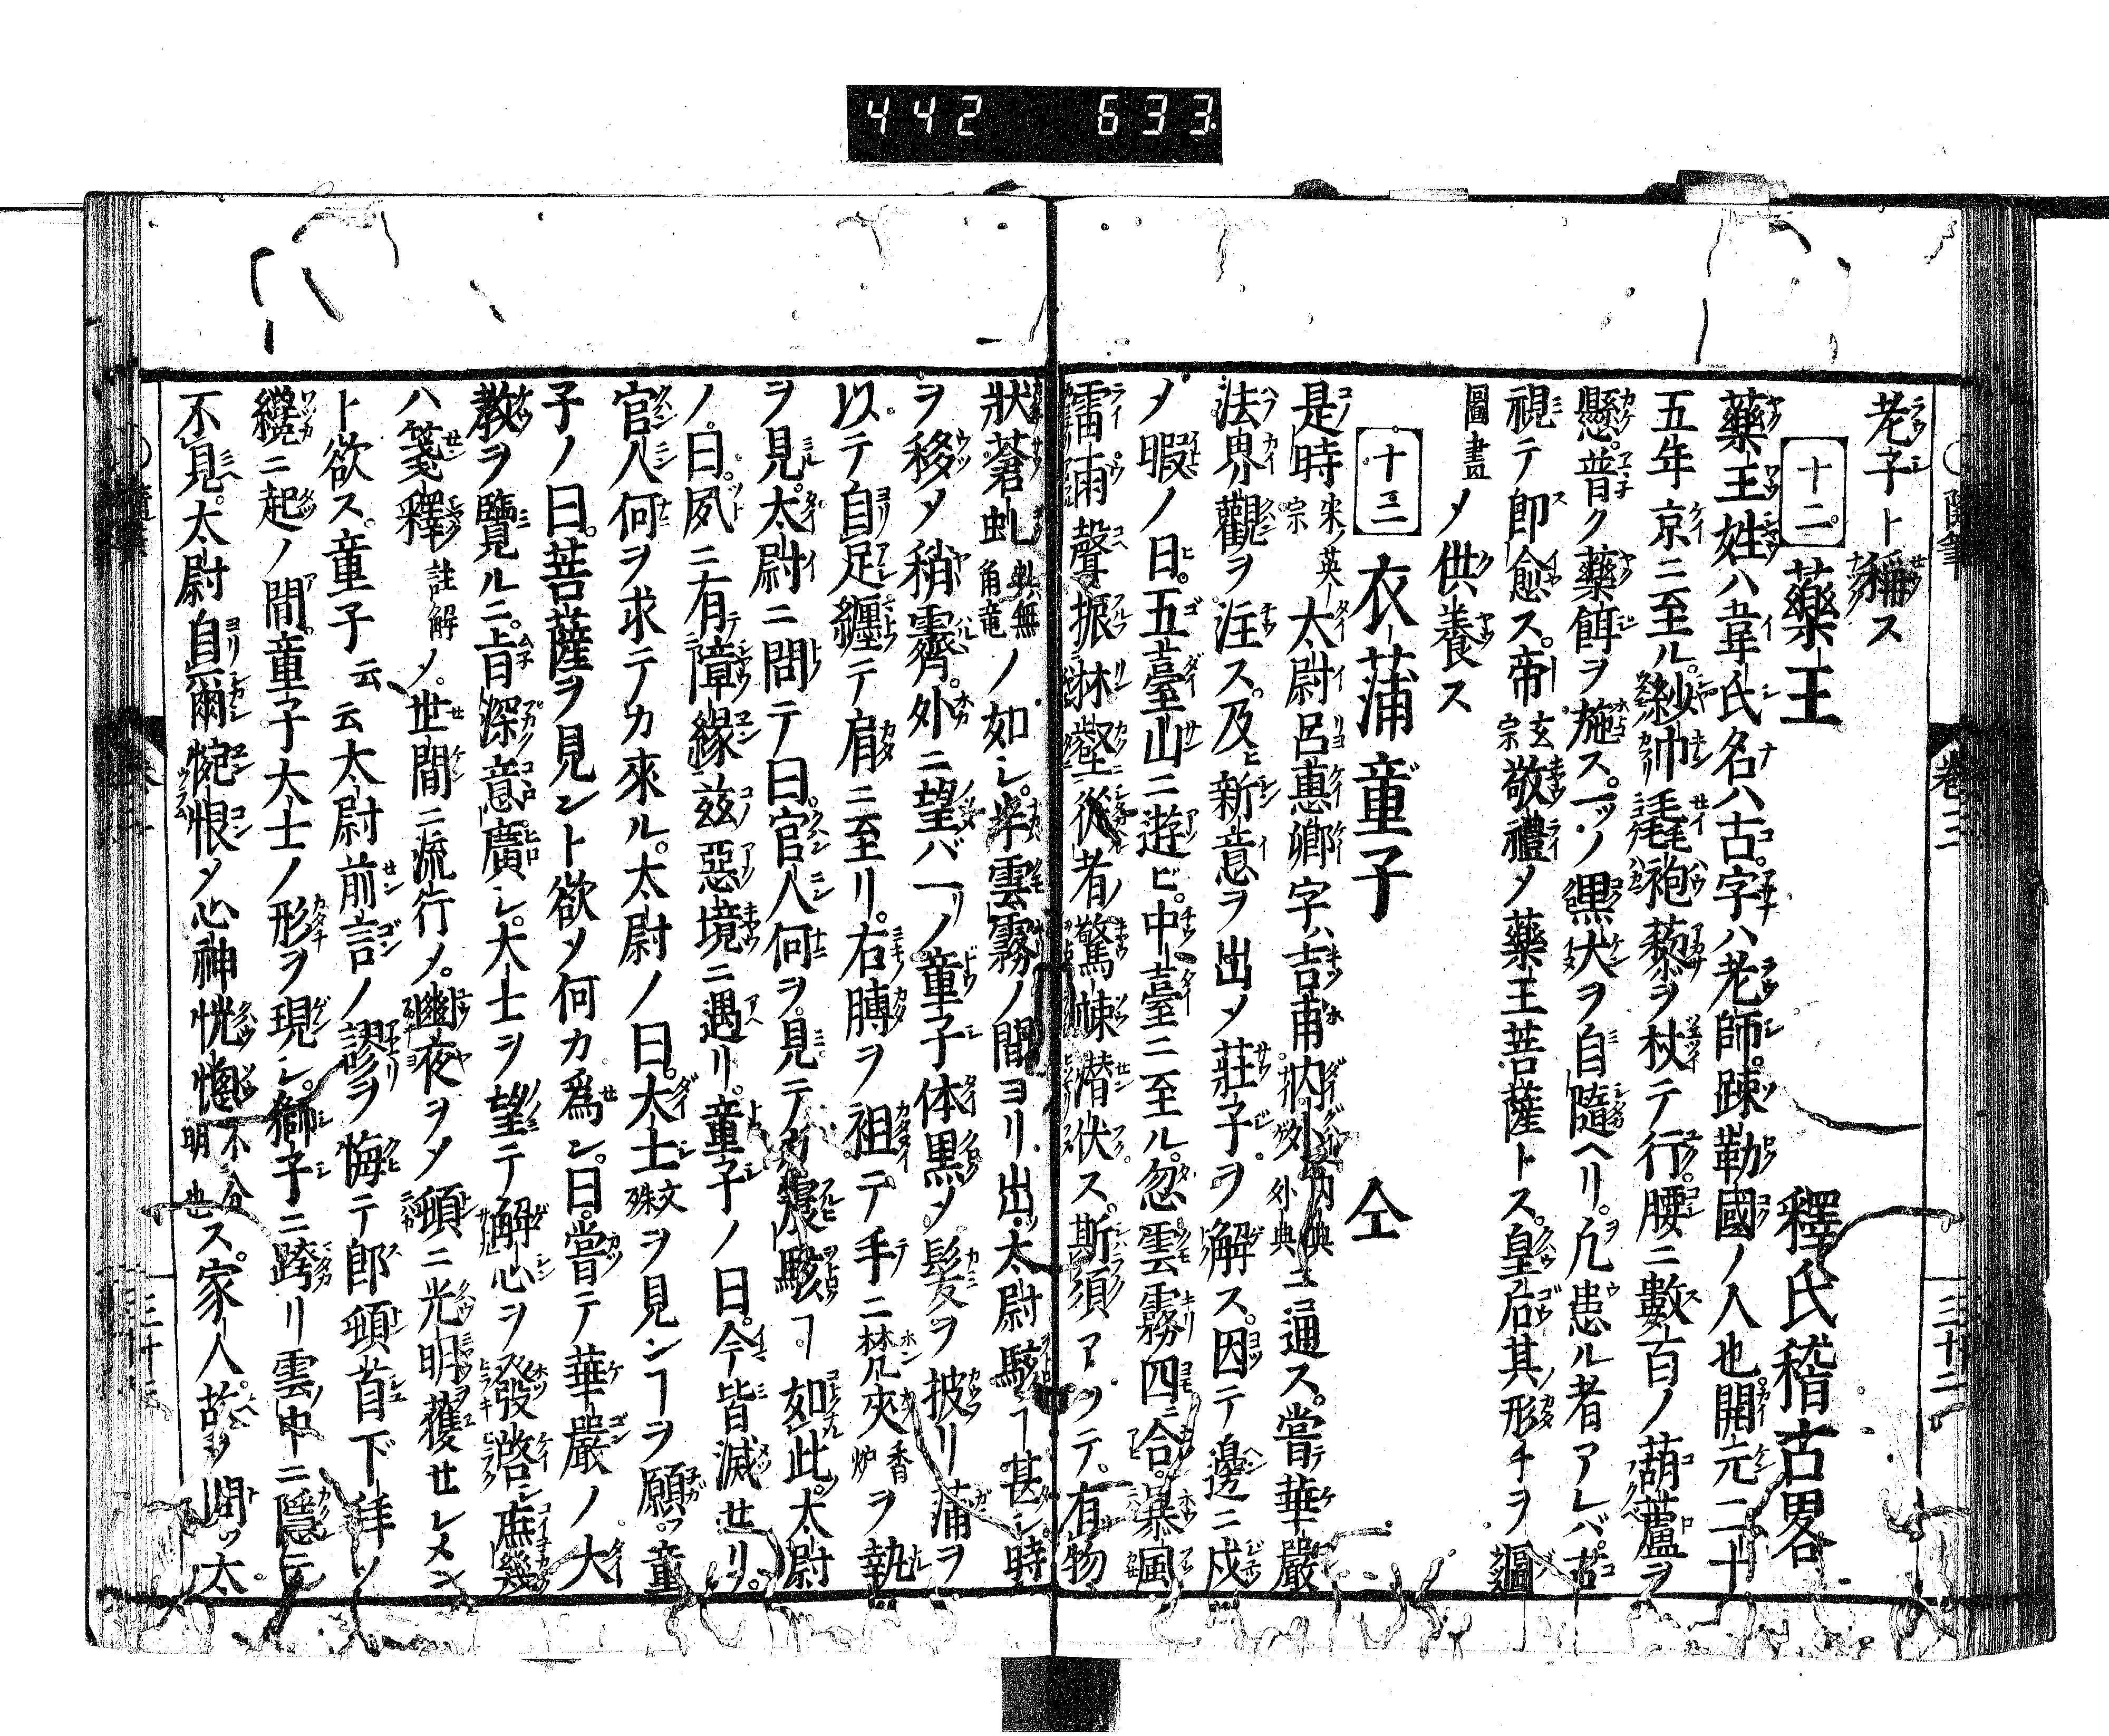 442 633
老子ト稱ス
十二 藥王 釋氏稽古畧
藥王姓ハ韋氏名ハ古字ハ老師踈勒國ノ人也開元二十
五年京ニ至ル紗巾毳袍藜ヲ杖テ行腰ニ數百ノ葫蘆ヲ
懸普ク藥餌ヲ施ス一ツノ黒犬ヲ自隨ヘリ凢患ル者アレバ古
視テ即愈ス帝玄宗敬禮メ藥王菩薩トス皇后其形チヲ
圖畫メ供養ス
十三 衣蒲童子 仝
是時宋ノ英宗太尉呂惠卿字ハ吉甫内外内典外典ニ通ス嘗テ華嚴
法界觀ヲ注ス及ヒ新意ヲ出メ莊子ヲ解ス因テ邊ニ戍
メ暇ノ日五臺山ニ遊ビ中臺ニ至ル忽雲霧四ニ合暴風
雷雨聲振林壑從者ノ驚悚潜伏ス斯須アツテ有物
狀蒼虬ノ如シ半雲霧ノ間ヨリ出太尉駭ヿ甚シ時
ヲ移メ稍霽外ニ望バ一リノ童子体黒メ髪ヲ披リ蒲ヲ
以テ自足纏テ肩ニ至リ右膊ヲ袒テ手ニ梵夾香炉ヲ執
ヲ見太尉ニ問テ曰官人何ヲ見テカ駭ヿ如此太尉
ノ曰夙ニ有障緣茲惡境ニ遇リ童子ノ曰今皆滅セリ
官人何ヲ求テカ來ル太尉ノ曰大士文殊ヲ見ンヿヲ願フ童
子ノ曰菩薩ヲ見ント欲メ何カ爲ン曰嘗テ華嚴ノ大
教ヲ覽ルニ旨深意廣シ大士ヲ望テ解心ヲ發啓シ庶幾
ハ箋釋註解メ世間ニ流行メ幽夜ヲメ頓ニ光明獲セシメン
ト欲ス童子云云太尉前言ノ謬ヲ悔テ即頓首下拜ノ
纔ニ起ノ間童子大士ノ形ヲ現シ獅子ニ跨リ雲中ニ隱テ
不見太尉自爾惋恨メ心神恍惚不分明也ス家人故ヲ問ッ太
卷三
三十二